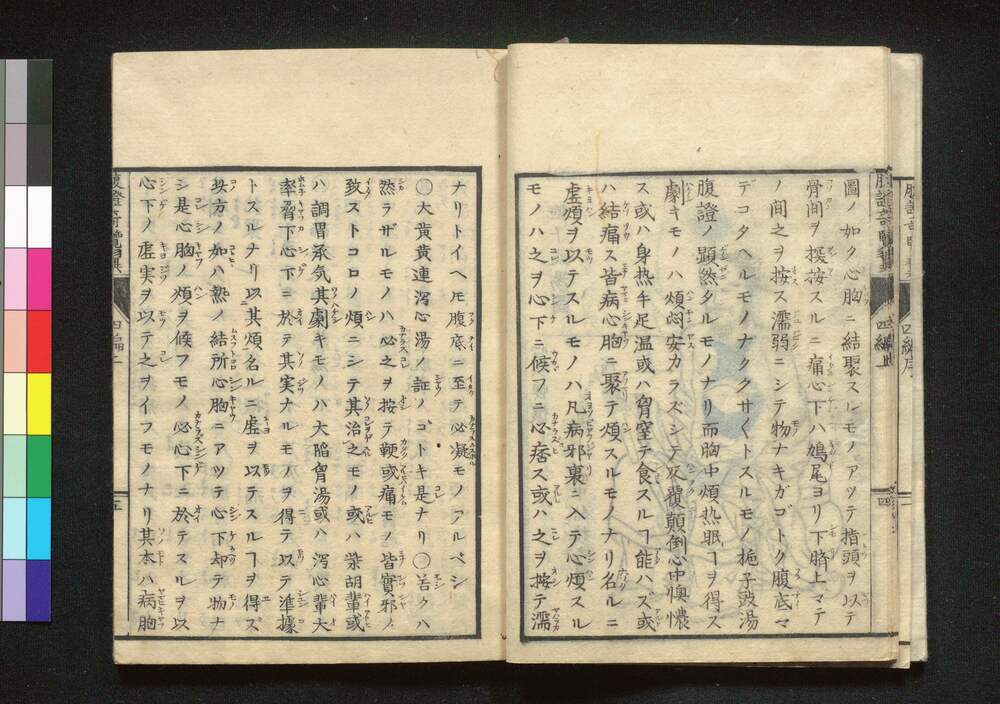 圖ノ如ク心胸ニ結聚スルモノアツテ指頭ヲ以テ
骨間ヲ探按スルニ痛心下ハ鳩尾ヨリ下臍上マテ
ノ間之ヲ按ス濡弱ニシテ物ナキガゴトク腹底マ
デコタヘルモノナククサ〱トスルモノ梔子豉湯
腹證ノ顕然タルモノナリ而胸中煩熱眠ヿヲ得ス
劇キモノハ煩悶安カラズシテ反覆顛倒心中懊憹
ス或ハ身热手足温或ハ胷窒テ食スルヿ能ハズ或
ハ結痛ス皆病心胸ニ聚テ煩スルモノナリ名ルニ
虚煩ヲ以テスルモノハ凡病邪裏ニ入テ心煩スル
モノハ之ヲ心下ニ候フニ心痞ス或ハ之ヲ按テ濡
ナリトイヘモ腹底ニ至テ必凝モノアルベシ
〇大黄黄連瀉心湯ノ証ノゴトキ是ナリ〇若クハ
然ラザルモノハ必之ヲ按テ鞕或痛モノ皆實邪ノ
致ストコロノ煩ニシテ其治之モノ或ハ柴胡輩或
ハ調胃承気其劇キモノハ大陥胷湯或ハ瀉心輩大
率脅下心下ニ於テ其実ナルモノヲ得テ以テ準據
トスルナリ以其煩名ルニ虚ヲ以テスルヿヲ得ズ
此方ノ如ハ熱ノ結所心胸ニアツテ心下却テ物ナ
シ是心胸ノ煩ヲ候フモノ必心下ニ於テスルヲ以
心下ノ虚実ヲ以テ之ヲイフモノナリ其本ハ病胸
四編二
五
四
四編序